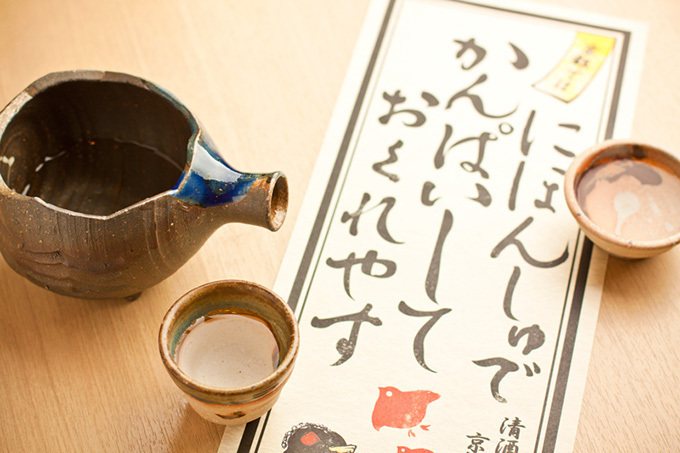 にほんしゅで
かんぱいして
おくれやす
清酒
京